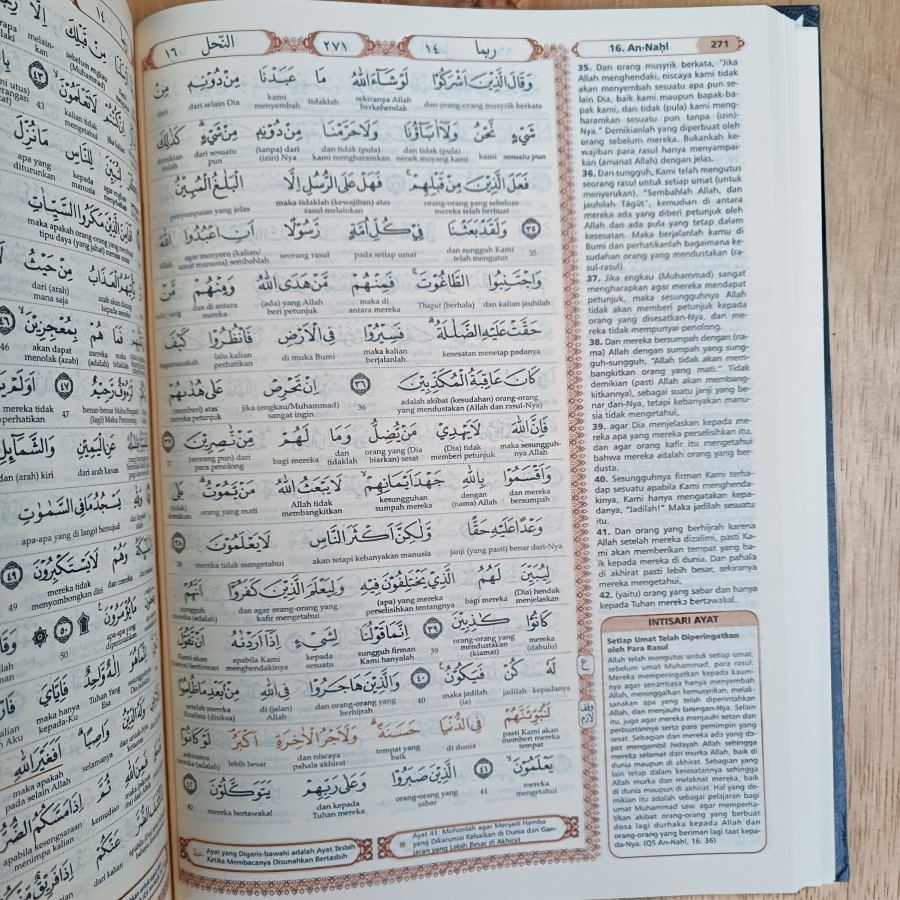 ربما ١٤
٢٧١
النّحل ١٦
وَقَالَ الَّذِيْنَ اَشْرَكُوْا لَوْ شَاۤءَ اللّٰهُ مَا عَبَدْنَا مِنْ دُوْنِهٖ مِنْ
dan orang-orang musyrik berkata
sekiranya Allah berkehendak
tidaklah
kami menyembah
dari selain Dia
dari
شَيْءٍ نَّحْنُ وَلَآ اٰبَاۤؤُنَا وَلَا حَرَّمْنَا مِنْ دُوْنِهٖ مِنْ شَيْءٍۗ كَذٰلِكَ
sesuatu pun
kami
dan tidak (pula) nenek moyang kami
dan tidak (pula) kami mengharamkan
(tanpa) dari (izin) Nya
dari sesuatu pun
demikian itulah
فَعَلَ الَّذِيْنَ مِنْ قَبْلِهِمْۚ فَهَلْ عَلَى الرُّسُلِ اِلَّا الْبَلٰغُ الْمُبِيْنُ
orang-orang yang sebelum mereka telah berbuat
maka tidaklah (kewajiban) atas rasul melainkan
penyampaian yang jelas
٣٥ وَلَقَدْ بَعَثْنَا فِيْ كُلِّ اُمَّةٍ رَّسُوْلًا اَنِ اعْبُدُوا اللّٰهَ
35
dan sungguh Kami telah mengutus
pada setiap umat
seorang rasul
agar menyeru (kalian/umat manusia) sembahlah
Allah
وَاجْتَنِبُوا الطَّاغُوْتَۚ فَمِنْهُمْ مَّنْ هَدَى اللّٰهُ وَمِنْهُمْ مَّنْ
dan kalian jauhilah
Thagut (berhala)
maka di antara mereka
(ada) yang Allah beri petunjuk
dan di antara mereka
حَقَّتْ عَلَيْهِ الضَّلٰلَةُۗ فَسِيْرُوْا فِى الْاَرْضِ فَانْظُرُوْا كَيْفَ
kesesatan menetap padanya
maka kalian berjalanlah
di muka Bumi
lalu kalian perhatikan
bagaimanakah
كَانَ عَاقِبَةُ الْمُكَذِّبِيْنَ ٣٦ اِنْ تَحْرِصْ عَلٰى هُدٰىهُمْ
adalah akibat (kesudahan) orang-orang yang mendustakan (Allah dan rasul-Nya)
36
jika (engkau/Muhammad) sangat ingin
(memberi) atas petunjuk mereka
فَاِنَّ اللّٰهَ لَا يَهْدِيْ مَنْ يُّضِلُّ وَمَا لَهُمْ مِّنْ نّٰصِرِيْنَ ٣٧
maka sesungguhnya Allah
(Dia) tidak memberi petunjuk
orang yang (Dia) biarkan) sesat
dan tidaklah
bagi mereka
(seorang pun) dari para penolong
37
وَاَقْسَمُوْا بِاللّٰهِ جَهْدَ اَيْمَانِهِمْۙ لَا يَبْعَثُ اللّٰهُ مَنْ يَّمُوْتُۗ بَلٰى
dan mereka bersumpah
dengan (nama) Allah
kesungguhan sumpah mereka
Allah tidak membangkitkan
orang yang mati
(tidak) demikian
وَعْدًا عَلَيْهِ حَقًّا وَّلٰكِنَّ اَكْثَرَ النَّاسِ لَا يَعْلَمُوْنَ ٣٨
janji (yang pasti) benar dari-Nya
akan tetapi kebanyakan manusia
mereka tidak mengetahui
38
لِيُبَيِّنَ لَهُمُ الَّذِيْ يَخْتَلِفُوْنَ فِيْهِ وَلِيَعْلَمَ الَّذِيْنَ كَفَرُوْٓا اَنَّهُمْ
(Dia) hendak menjelaskan
bagi mereka
(apa) yang mereka perselisihkan tentangnya
dan agar orang-orang kafir mengetahui
sungguh mereka (adalah)
كَانُوْا كٰذِبِيْنَ ٣٩ اِنَّمَا قَوْلُنَا لِشَيْءٍ اِذَآ اَرَدْنٰهُ اَنْ نَّقُوْلَ
mereka (dahulu)
orang-orang yang mendustakan
39
sungguh firman Kami hanyalah
kepada sesuatu
apabila Kami menghendakinya
Kami akan (berfirman)
لَهٗ كُنْ فَيَكُوْنُ ٤٠ وَالَّذِيْنَ هَاجَرُوْا فِى اللّٰهِ مِنْۢ بَعْدِ مَا ظُلِمُوْا
kepadanya
jadilah
maka jadilah (ia)
40
dan orang-orang yang berhijrah
di (jalan) Allah
setelah mereka dizalimi (disiksa)
لَنُبَوِّئَنَّهُمْ فِى الدُّنْيَا حَسَنَةً ۗوَلَاَجْرُ الْاٰخِرَةِ اَكْبَرُۘ لَوْ كَانُوْا
pasti Kami akan memberi mereka tempat
di dunia
tempat yang baik
dan niscaya pahala akhirat
lebih besar
sekiranya mereka (adalah)
يَعْلَمُوْنَۙ ٤١ الَّذِيْنَ صَبَرُوْا وَعَلٰى رَبِّهِمْ يَتَوَكَّلُوْنَ ٤٢
mereka mengetahui
41
orang-orang yang sabar
dan kepada Tuhan mereka
mereka bertawakal
42
Ayat yang Digaris-bawahi adalah Ayat Tasbih
Ketika Membacanya Disunahkan Bertasbih
Ayat 41: Mohonlah agar Menjadi Hamba
yang Dikaruniai Kebaikan di Dunia dan Gan-
jaran yang Lebih Besar di Akhirat
16. An-Naḥl 271
35. Dan orang musyrik berkata, "Jika
Allah menghendaki, niscaya kami tidak
akan menyembah sesuatu apa pun se-
lain Dia, baik kami maupun bapak-ba-
pak kami, dan tidak (pula) kami meng-
haramkan sesuatu pun tanpa (izin)-
Nya." Demikianlah yang diperbuat oleh
orang sebelum mereka. Bukankah ke-
wajiban para rasul hanya menyampai-
kan (amanat Allah) dengan jelas.
36. Dan sungguh, Kami telah mengutus
seorang rasul untuk setiap umat (untuk
menyerukan), "Sembahlah Allah, dan
jauhilah Tāgūt", kemudian di antara
mereka ada yang diberi petunjuk oleh
Allah dan ada pula yang tetap dalam
kesesatan. Maka berjalanlah kamu di
Bumi dan perhatikanlah bagaimana ke-
sudahan orang yang mendustakan (ra-
sul-rasul).
37. Jika engkau (Muhammad) sangat
mengharapkan agar mereka mendapat
petunjuk, maka sesungguhnya Allah
tidak akan memberi petunjuk kepada
orang yang disesatkan-Nya, dan me-
reka tidak mempunyai penolong.
38. Dan mereka bersumpah dengan (na-
ma) Allah dengan sumpah yang sung-
guh-sungguh, "Allah tidak akan mem-
bangkitkan orang yang mati." Tidak
demikian (pasti Allah akan membang-
kitkannya), sebagai suatu janji yang be-
nar dari-Nya, tetapi kebanyakan manu-
sia tidak mengetahui,
39. agar Dia menjelaskan kepada me-
reka apa yang mereka perselisihkan itu,
dan agar orang kafir itu mengetahui
bahwa mereka adalah orang yang ber-
dusta.
40. Sesungguhnya firman Kami terha-
dap sesuatu apabila Kami menghenda-
kinya, Kami hanya mengatakan kepa-
danya, "Jadilah!" Maka jadilah sesuatu
itu.
41. Dan orang yang berhijrah karena
Allah setelah mereka dizalimi, pasti Ka-
mi akan memberikan tempat yang ba-
ik kepada mereka di dunia. Dan pahala
di akhirat pasti lebih besar, sekiranya
mereka mengetahui,
42. (yaitu) orang yang sabar dan hanya
kepada Tuhan mereka bertawakal.
INTISARI AYAT
Setiap Umat Telah Diperingatkan
oleh Para Rasul
Allah telah mengutus untuk setiap umat,
sebelum umat Muhammad, para rasul.
Mereka memperingatkan kepada kaum-
nya agar senantiasa hanya menyembah
Allah, meninggalkan kemusyrikan, melak-
sanakan apa yang telah diperintahkan
Allah, dan menjauhi larangan-Nya. Selain
itu, juga agar mereka menjauhi setan dan
perbuatannya serta para pemimpin yang
sesat. Sebagian dari mereka ada yang da-
pat mengambil hidayah Allah sehingga
mereka selamat dari murka Allah, baik di
dunia maupun di akhirat. Sebagian yang
lain tetap dalam kesesatannya sehingga
Allah murka dan melaknat mereka, baik
di dunia maupun di akhirat. Hal yang de-
mikian itu adalah sebagai pelajaran bagi
umat Muhammad saw. agar memperha-
tikan akibat orang-orang yang berbuat
dosa lagi durhaka kepada Allah dan
orang-orang yang beriman lagi taat kepa-
da-Nya. (QS An-Nahl, 16: 36)
١٤
مِنْ قَبْلِكَ اِلَّا
sebelum engkau (Muhammad)
melain-kan
لَا تَعْلَمُوْنَ ٤٣
kalian tidak mengetahui
43
لِلنَّاسِ مَا نُزِّلَ
kepada manusia
apa yang diturunkan
الَّذِيْنَ مَكَرُوا السَّيِّاٰتِ
maka apakah orang-orang yang membuat tipu daya (yang jahat) merasa aman
مِنْ حَيْثُ
dari (arah) mana saja
فَمَا هُمْ بِمُعْجِزِيْنَ ٤٦
maka tidak (adalah) mereka
akan dapat menolak (azab)
46
٤٧ اَوَلَمْ يَرَوْا
benar-benar Maha Pengasih (lagi) Maha Penyayang
47
mereka tidak perhatikan
عَنِ الْيَمِيْنِ وَالشَّمَاۤىِٕلِ
dari arah kanan
dan (arah) kiri
يَسْجُدُ مَا فِى السَّمٰوٰتِ
apa-apa yang di langit bersujud
وَهُمْ لَا يَسْتَكْبِرُوْنَ ٤٩
dan mereka
mereka tidak menyombongkan diri
49
٥٠
apa-apa yang diperintahkan
50
اِلٰهٌ وَّاحِدٌ فَاِيَّايَ
Tuhan Yang Esa
maka hanya kepada-Ku
وَاصِبًاۗ اَفَغَيْرَ اللّٰهِ
selamanya
maka apakah pada selain Allah
ثُمَّ اِذَا مَسَّكُمُ الضُّرُّ
kemudian
apabila kesengsaraan menimpa kalian
عَنْكُمْ اِذَا فَرِيْقٌ
dari kalian